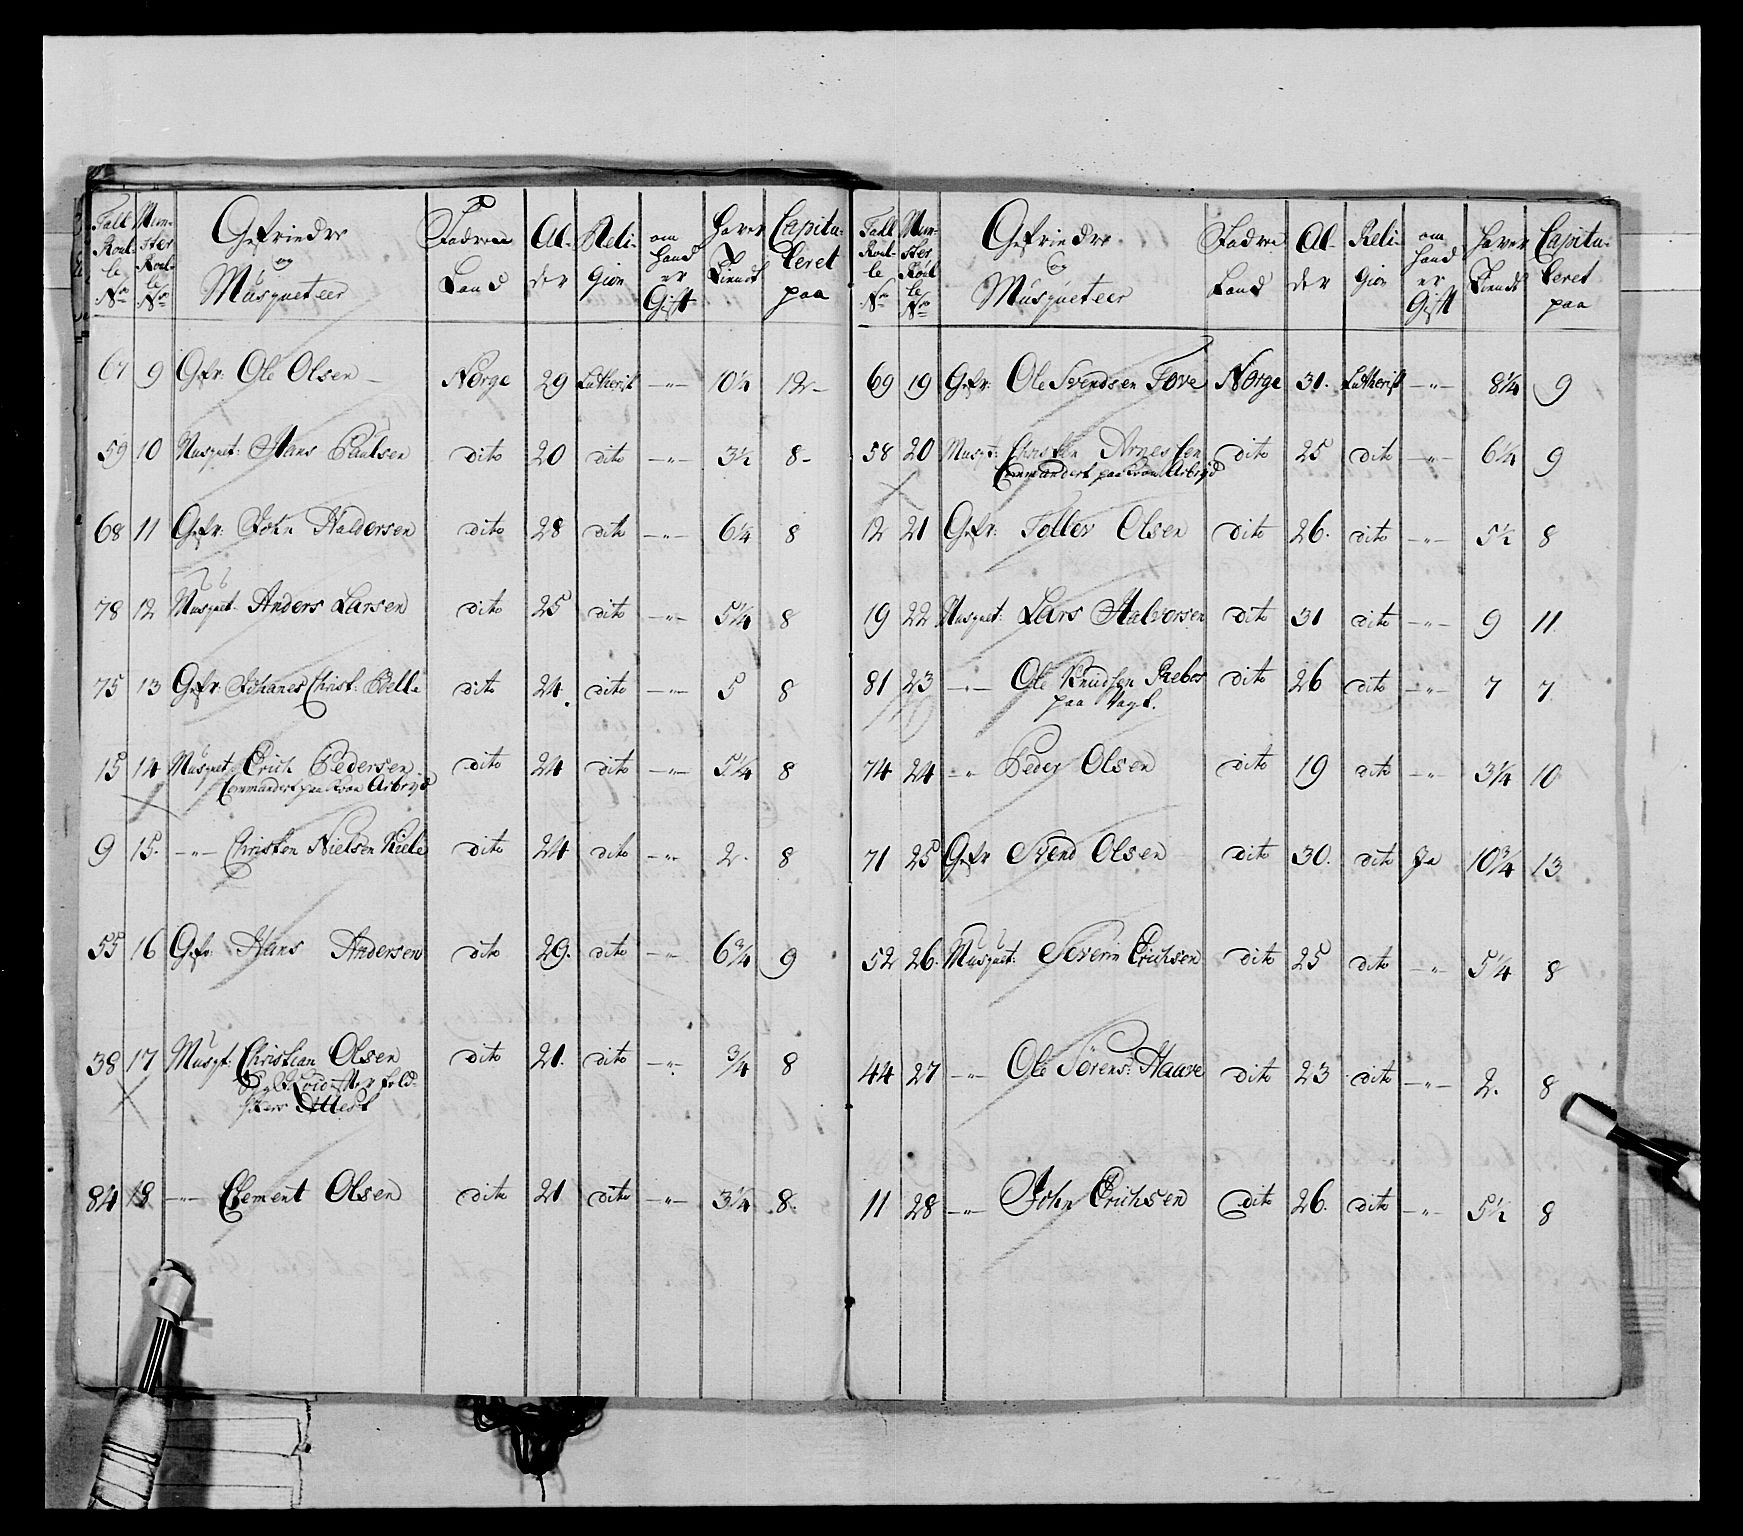 Tall Roulle No | Mynster Roulle No | Gefriedre og Musqueteer | Fædrene Land | Alder | Religion | om hand er Gift | haver Tiendt | Capituleret paa
67 9 Gefr: Ole Olsen Norge 29 Lutherisk -"- 10¼ 12
59 10 Musquet: Hans Paulsen dito 20 dito -"- 3½ 8
68 11 Gefr: John Haldorsen dito 28 dito -"- 6¼ 8
78 12 Musquet: Anders Larsen dito 25 dito -"- 5¼ 8
75 13 Gefr: Johanes Christ: Belle dito 24 dito -"- 5 8
15 14 Musquet Erich Pedersen dito 24 dito -"- 5¼ 8
Commandert paa Arbeyd
9 15 -"- Christen Nielsen Kiele dito 24 dito -"- 2 8
55 16 Gefr: Hans Andersen dito 29 dito -"- 6¾ 9
38 17 Musqt: Christian Olsen dito 21 dito -"- ¾ 8
Attest
84 18 -"- Clement Olsen dito 21 dito -"- 3¼ 8
Tall Roulle No | Mynster Roulle No | Gefriedre og Musqueteer | Fædrene Land | Alder | Religion | om hand er Gift | haver Tiendt | Capituleret paa
69 19 Gefr: Ole Svendsen Tove Norge 31 Lutherisk -"- 8¼ 9
58 20 Musqt: Christen Arnessen dito 25 dito -"- 6¼ 9
Commandert paa Arbeyd
12 21 Gefr: Tollev Olsen dito 26 dito -"- 5½ 8
19 22 Musquet: Lars Halvorsen dito 31 dito -"- 9 11
81 23 -"- Ole KnudsenRæbos dito 26 dito -"- 7 7
paa Vagt.
74 24 -"- Peder Olsen dito 19 dito -"- 3¼ 10
71 25 Gefr Svend Olsen dito 30 dito Ja 10¾ 13
52 26 Musquet: Severin Erichsen dito 25 dito -"- 5¼ 8
44 27 -"- Ole Sørens: Haave dito 23 dito -"- 2 8
11 28 -"- John Erichsen dito 26 dito -"- 5½ 8